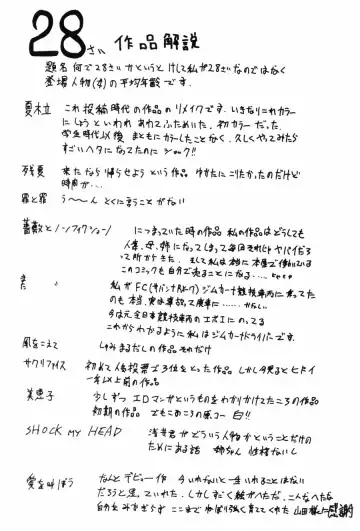 28さい 作品解説
題名 何で28さいかというと けして私が28さいなのではなく
登場人物(女)の平均年齢です.
夏木立 これ投稿時代の作品のリメイクです. いきなりこれカラー
にしようといわれ あわてふためいた. 初カラーだった.
学生時代以後 まともにカラーしたことなく、久しぐやってみたら
すごいヘタになってたのに ショック!!
残夏 来たなら 帰らせよう という作品 ゆかたに こりたかったのだけど
時間が…
罪と罪 う〜〜ん とくに言うことがない
薔薇とノンフィクション につまっていた時の作品 私の作品はどうしても
人妻、母、姉になってしまって毎回それじゃヤバイだろ
って所からきた. そして私は本当に本屋で働いている
このコミックも自分で売ることになる…
私がFC
ジムカーナ競技車両に乗ってた
のも本当. 実は事故って廃車に…… かなしい
今はたぶん全日本競技車両の
にのってる
これからわかるように 私はジムカーナドライバーです.
風をこえて しゅみまるだしの作品 それだけ
サクリファイス 初めて人気投票で3位をとった作品 しかし今見るとヒドイ
一年以上前の作品
美恵子 少しずつ エロマンガというものをわかりかけてたころの作品
初期の作品 でもこのころの原コー 白!!
SHOCK MY HEAD 浅井君がどういう人物か ということだけの
ためにある話 姉ちゃん 性格ないし
愛を叫ぼう なんとデビュー作 今いれないと一生いれることはない
だろうと足していれた. しかしすごく絵がヘタだ. こんなヘたな
自分をみすてずに ここまでねばり強く育ててくれた 山田様に感謝